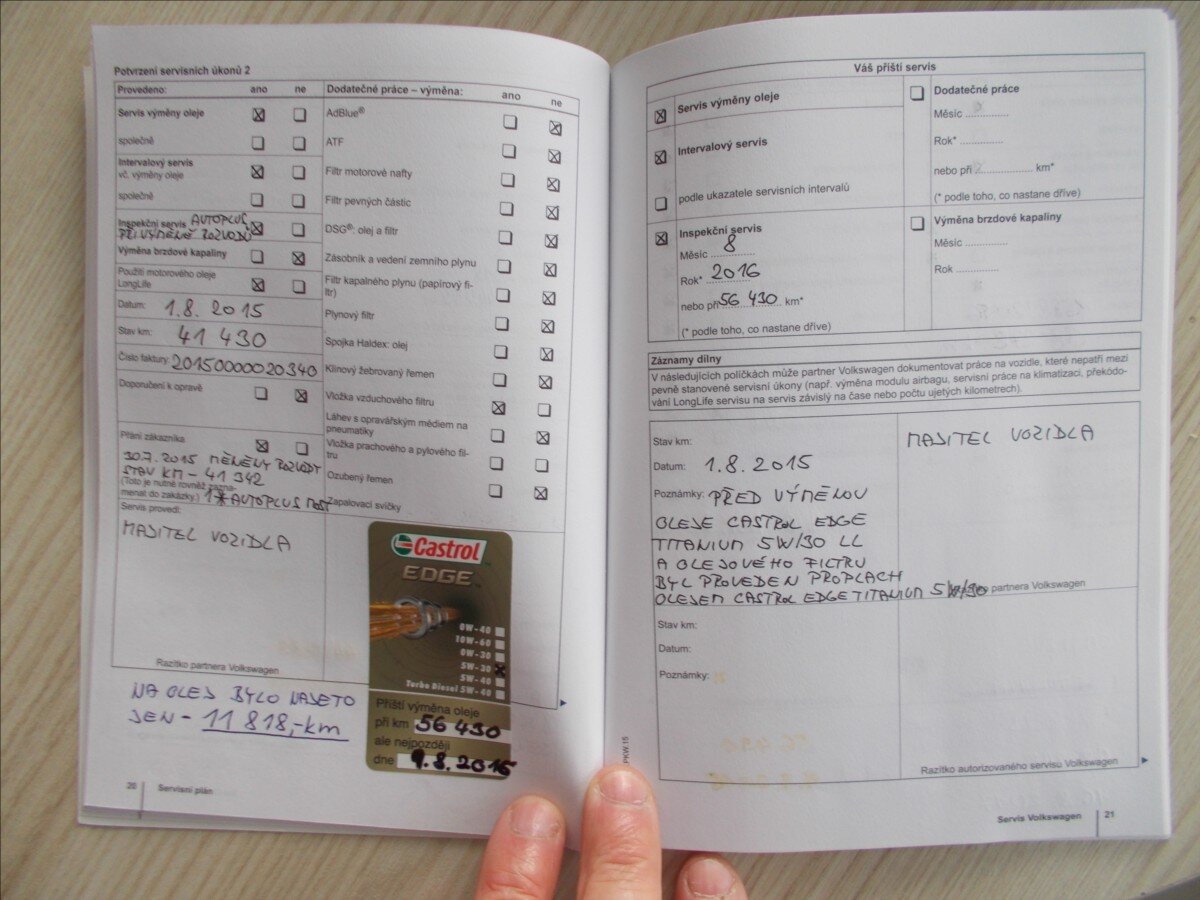 Potvrzení servisních úkonů 2
Provedeno: ano ne
Servis výměny oleje
společně
Intervalový servis
vč. výměny oleje
společně
Inspekční servis AUTOPLUS
PŘI VÝMĚNĚ ROZVODŮ
Výměna brzdové kapaliny
Použití motorového oleje
LongLife
Datum: 1.8.2015
Stav km: 41 430
Číslo faktury: 2015000020340
Doporučení k opravě
Přání zákazníka
30.7.2015 MĚNĚNY ROZVODY
STAV KM - 41 342
(Toto je nutné rovněž zazna-
menat do zakázky.) 1* AUTOPLUS MOST
Servis provedl:
MAJITEL VOZIDLA
Razítko partnera Volkswagen
NA OLEJ BYLO NAJETO
JEN - 11 818,-km
20 Servisní plán
Dodatečné práce – výměna: ano ne
AdBlue®
ATF
Filtr motorové nafty
Filtr pevných částic
DSG®: olej a filtr
Zásobník a vedení zemního plynu
Filtr kapalného plynu (papírový fi-
ltr)
Plynový filtr
Spojka Haldex: olej
Klínový žebrovaný řemen
Vložka vzduchového filtru
Láhev s opravářským médiem na
pneumatiky
Vložka prachového a pylového fil-
tru
Ozubený řemen
Zapalovací svíčky
Castrol
EDGE
0W-40
10W-60
0W-30
5W-30
5W-40
Turbo Diesel 5W-40
Příští výměna oleje
při km 56 430
ale nejpozději
dne 1.8.2016
Váš příští servis
Servis výměny oleje
Intervalový servis
podle ukazatele servisních intervalů
Inspekční servis
Měsíc 8
Rok* 2016
nebo při 56 430 km*
(* podle toho, co nastane dříve)
Dodatečné práce
Měsíc
Rok*
nebo při km*
(* podle toho, co nastane dříve)
Výměna brzdové kapaliny
Měsíc
Rok
Záznamy dílny
V následujících políčkách může partner Volkswagen dokumentovat práce na vozidle, které nepatří mezi
pevně stanovené servisní úkony (např. výměna modulu airbagu, servisní práce na klimatizaci, překódo-
vání LongLife servisu na servis závislý na čase nebo počtu ujetých kilometrech).
Stav km:
Datum: 1.8.2015
Poznámky: PŘED VÝMĚNOU
OLEJE CASTROL EDGE
TITANIUM 5W/30 LL
A OLEJOVÉHO FILTRU
BYL PROVEDEN PROPLACH
OLEJEM CASTROL EDGE TITANIUM 5W/30
MAJITEL VOZIDLA
partnera Volkswagen
Stav km:
Datum:
Poznámky:
Razítko autorizovaného servisu Volkswagen
PKW.15
Servis Volkswagen 21